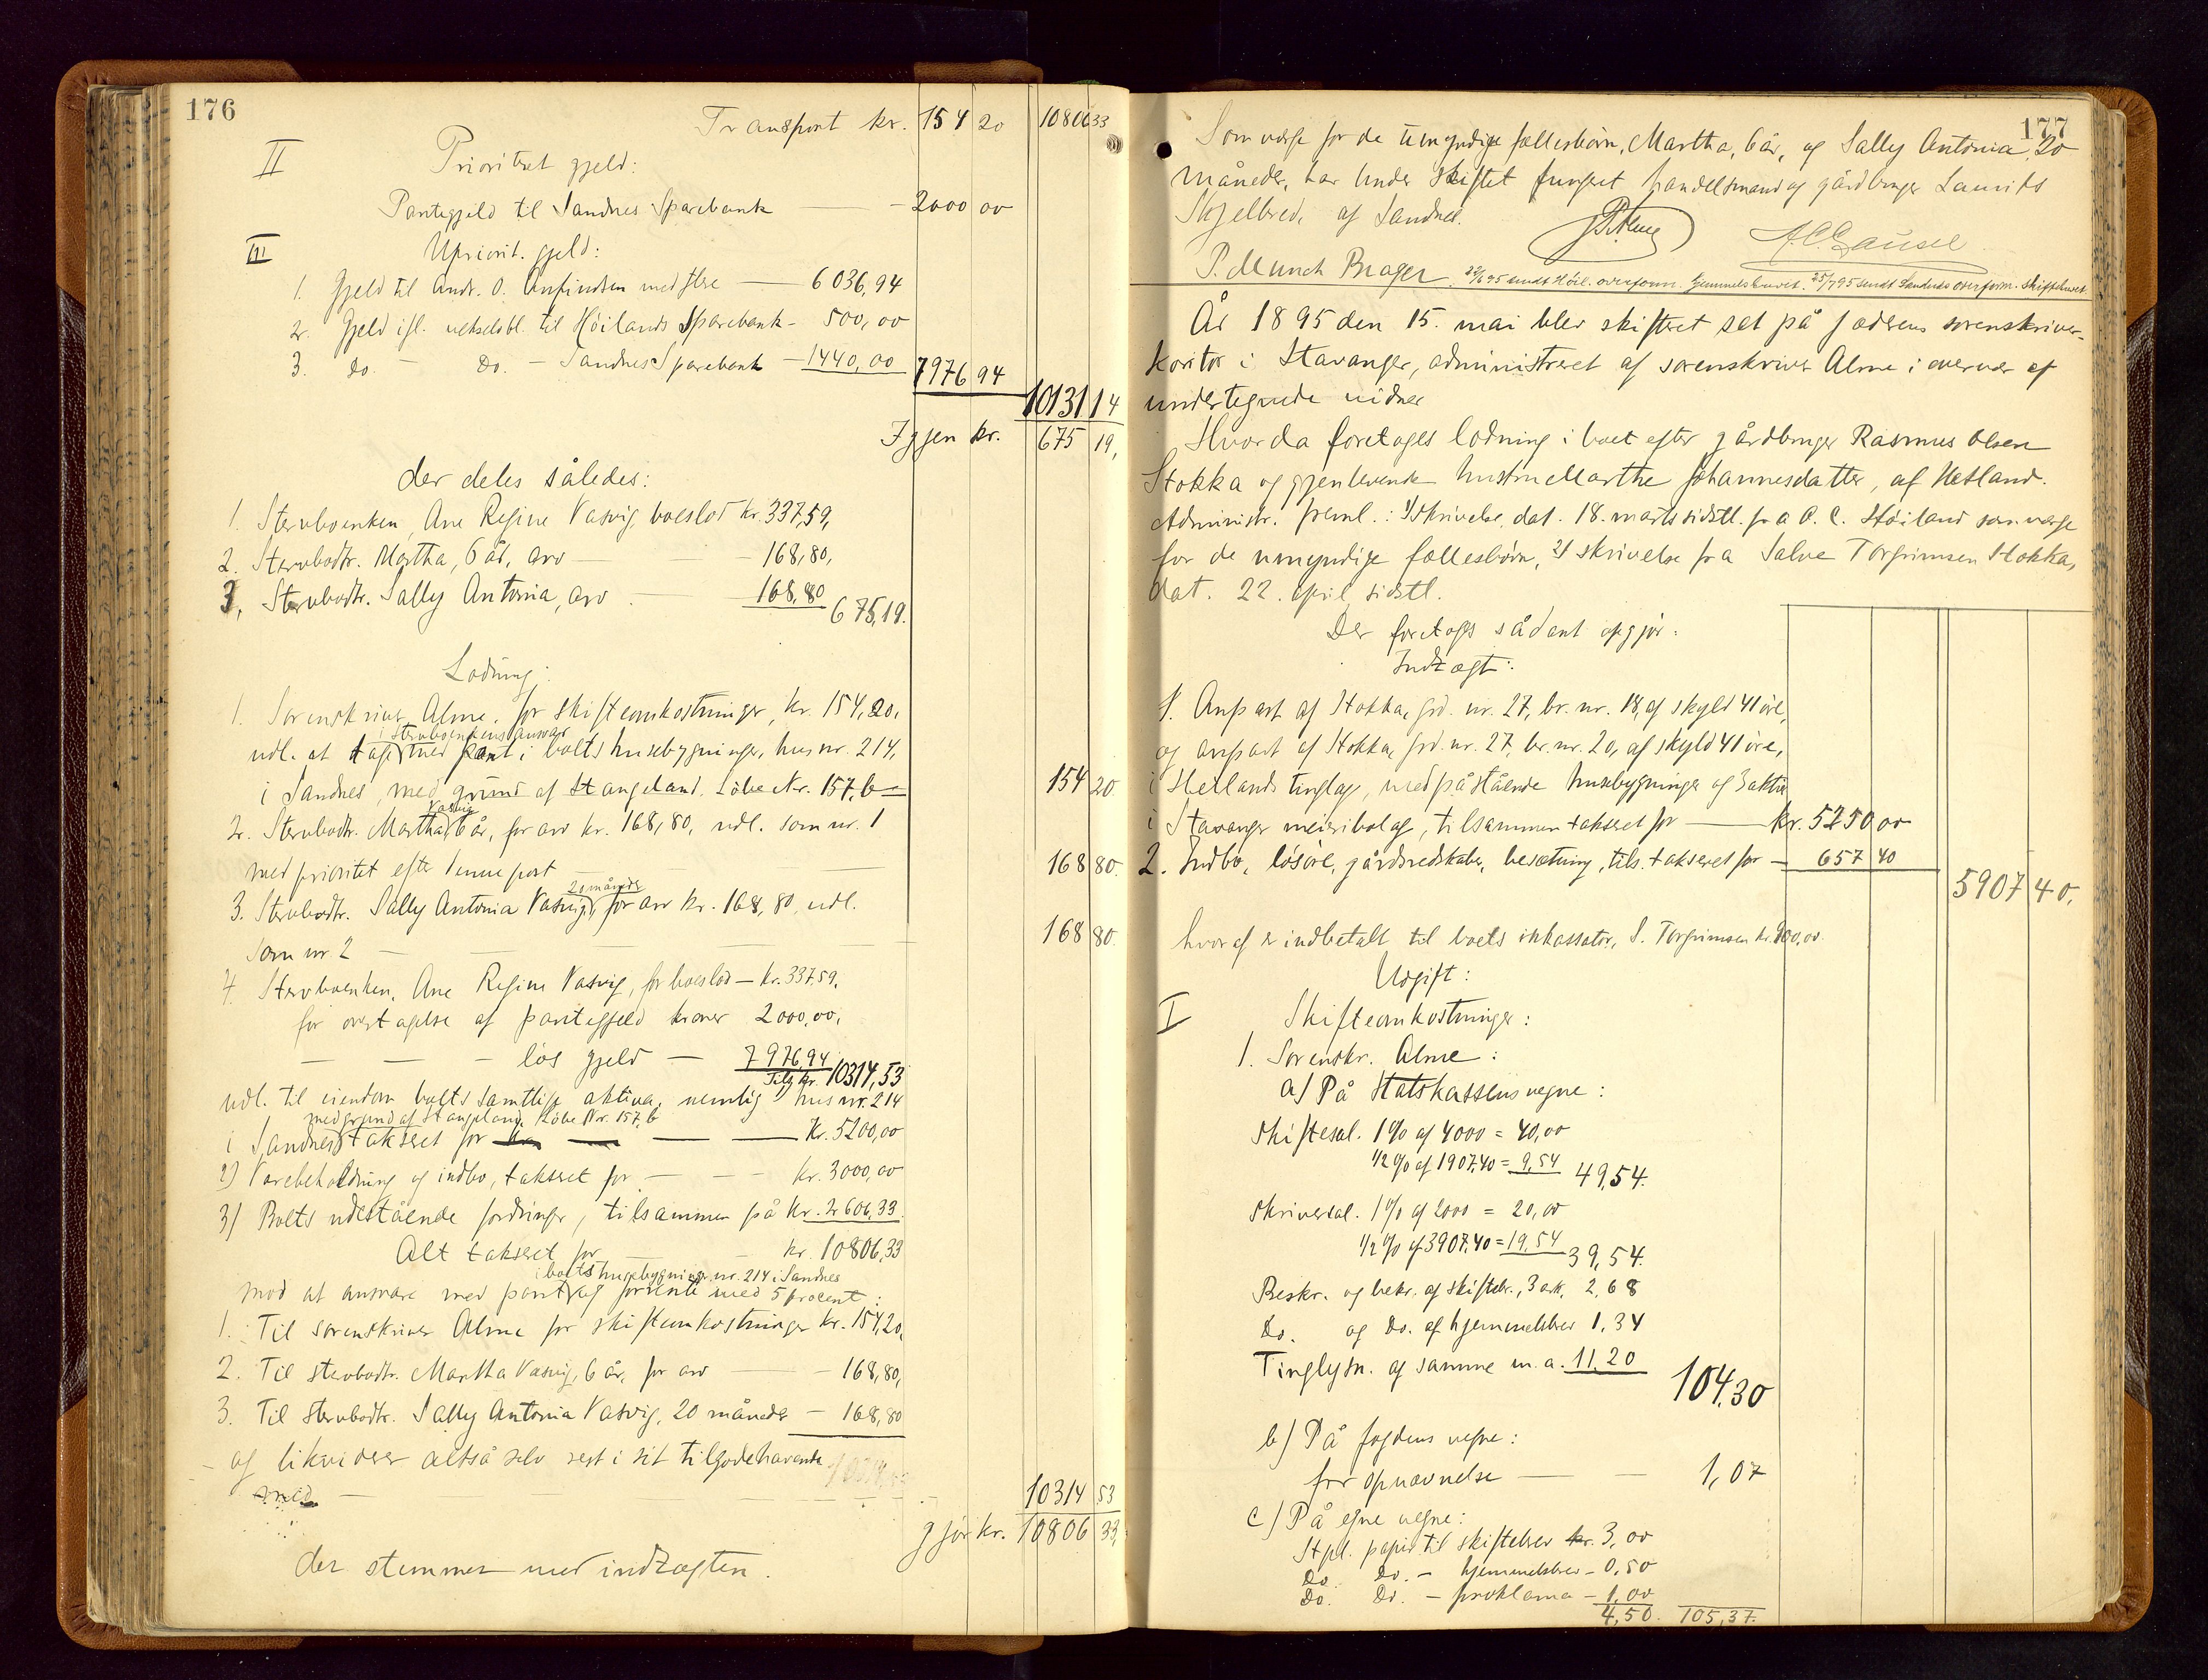 176
Transport kr. 154 20 10806 33
II
Prioritert gjeld:
Pantegjeld til Sandnes Sparebank — 2000 00
III
Upriorit. gjeld:
1. Gjeld til Andr. O. Anfindsen med flere — 6036,94
2. Gjeld ifl. vekselobl. til Höilands Sparebank - 500,00
3. do. - do. - Sandnes Sparebank - 1440,00 7976 94
10131 14
Igjen kr. 675 19,
der deles således:
1. Stervboenken, Ane Regine Vasvig, boeslod kr. 337,59,
2. Stervbodtr. Martha, 6 år, arv — 168,80,
3. Stervbodtr. Sally Antonia, arv — 168,80 675,19.
Lodning:
1. Sorenskriver Alme, for skifteomkostninger, kr. 154,20,
i stervboenkens ansvar
udl. at tage med pant i boets husebygninger, hus nr. 214,
i Sandnes, med grund af Stangeland. Löbe Nr. 157, b — 154 20
Vasvig
2. Stervbodtr. Martha 6 år, for arv kr. 168,80, udl. som nr. 1
med prioritet efter denne post — 168 80.
20 måneder
3. Stervbodtr. Sally Antonia Vasvig, for arv kr. 168,80, udl.
som nr 2 — 168 80.
4. Stervboenken, Ane Regine Vasvig, for boeslod — kr. 337,59,
for overtagelse af pantegjeld kroner 2000,00,
— — - lös gjeld — 7976,94
Tils. kr. 10314,53
udl. til eiendom boets samtlige aktiva, nemlig 1) hus nr. 214
med grund af Stangeland, Löbe Nr. 157, b
i Sandnes takseret for — kr. 5200,00
2) Varebeholdning og indbo, takseret for — kr. 3000,00
3) Boets udestående fordringer, tilsammen på kr. 2606,33.
Alt takseret for — kr. 10806,33
i boets husebygninger nr. 214 i Sandnes
mod at ansvare med pant og forrente med 5 procent:
1. Til sorenskriver Alme for skifteomkostninger kr. 154,20,
2. Til stervbodtr. Martha Vasvig, 6 år, for arv — 168,80,
3. Til stervbodtr. Sally Antonia Vasvig, 20 måneder — 168,80
- og likviderer altså selv rest i sit tilgodehavende
med — 10314 53
gjör kr. 10806 33,
der stemmer med indtægten.
177
Som verge for de umyndige fællesbörn, Martha, 6 år, og Sally Antonia, 20
måneder, har under skiftet fungeret handelsmand og gårdbruger Laurits
Skjelbred, af Sandnes.
P. Munch Brager. 22/6 95 sendt Höil. overform. hjemmelsbrevet. 25/7 95 sendt Sandnes overform. skiftebrevet
År 1895 den 15. mai blev skifteret sat på Jæderens sorenskriver-
kontor i Stavanger, administreret af sorenskriver Alme i overvær af
undertegnede vidner
Hvorda foretoges lodning i boet efter gårdbruger Rasmus Olsen
Stokka og gjenlevende hustru Marthe Johannesdatter, af Hetland.
Administr. freml.: 1/ skrivelse, dat. 18. marts sidstl. fra O. C. Höiland som verge
for de umyndige fællesbörn, 2/ skrivelse fra Salve Torgrimsen Stokka,
dat. 22. april sidstl.
Der foretoges sådant opgjör:
Indtægt:
1. Anpart af Stokka, grd. nr. 27, br. nr. 18, af skyld 41 öre,
og anpart af Stokka, grd. nr. 27, br. nr. 20, af skyld 41 öre,
i Hetlands tinglag, med påstående husebygninger og 3 aktier
i Stavanger meieribolag, tilsammen takseret for — kr. 5250 00
2. Indbo, lösöre, gårdsredskaber, besætning, tils. takseret for — 657 40
5907 40,
hvoraf er indbetalt til boets inkassator, S. Torgrimsen kr. 300,00.
Udgift:
I
Skifteomkostninger:
1. Sorenskr. Alme:
a) På Statskassens vegne:
Skiftesal. 1 % af 4000 = 40,00
1/2 % af 1907,40 = 9,54 49,54.
Skriversal. 1 % af 2000 = 20,00
1/2 % af 3907,40 = 19,54 39,54.
Beskr. og bekr. af skiftebr., 3 ark, 2,68
Do. og do. af hjemmelsbrev 1,34
Tinglysn. af samme m. a. 11,20 104,30
b) På fogdens vegne:
for opnævnelse — 1,07
c) På egne vegne:
Stpl. papir til skiftebrev kr. 3,00
Do. do. - hjemmelsbrev - 0,50
Do. do. - proklama - 1,00
4,50. 105,37.